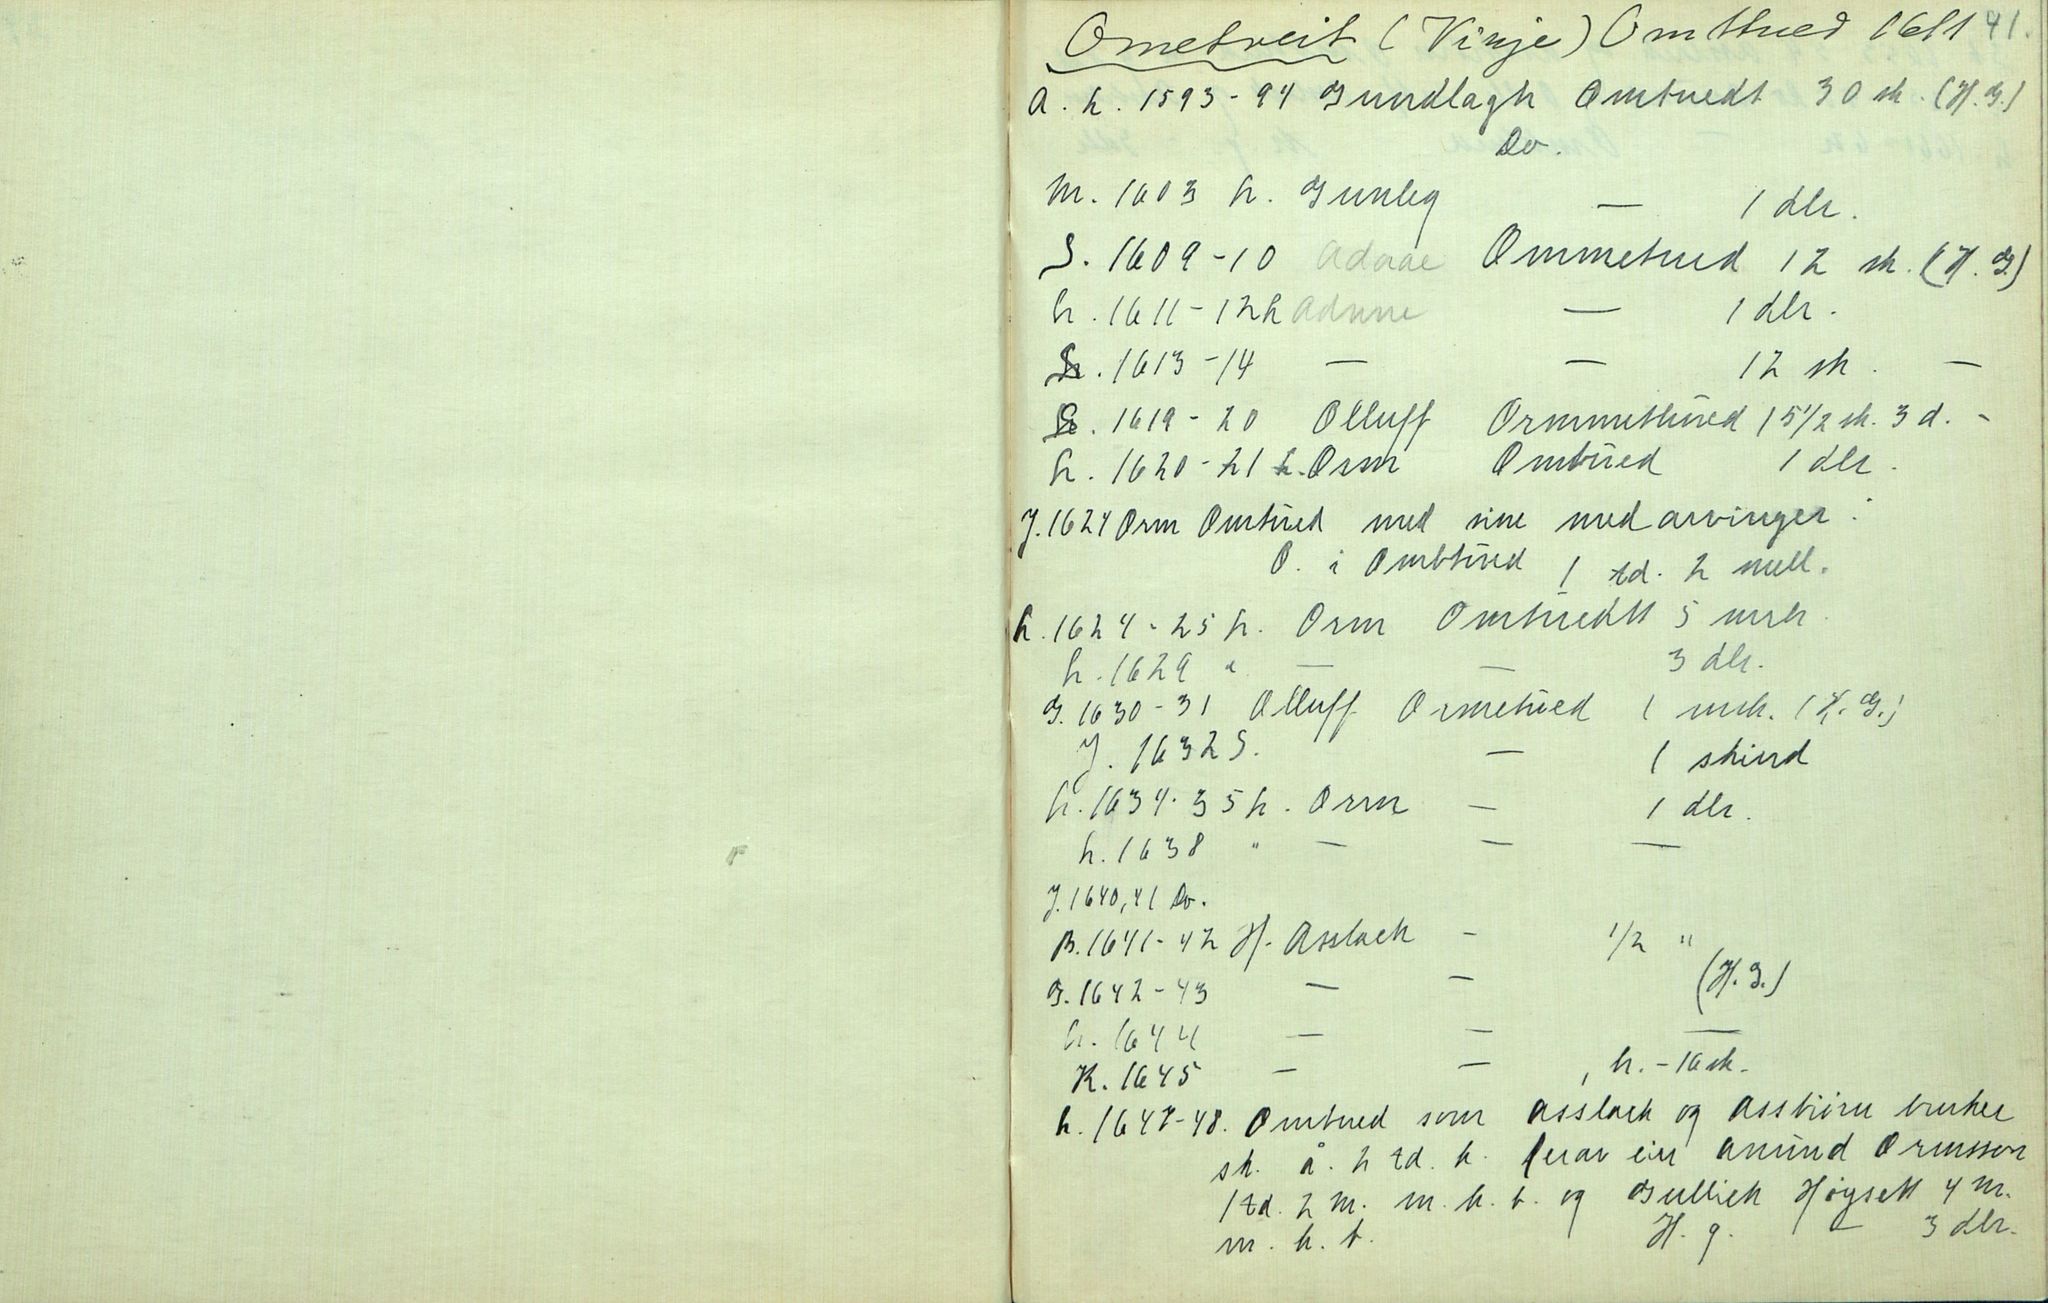 Ometveit (Vinje) Omthued 1611 41.
A. h. 1593-94 Gundlagh Omtuedt 30 sk. (H. G.)
Do.
M. 1603 h. Gunleg — 1 dlr.
S. 1609-10 Adnne Ommetued 12 sk. (H. G.)
h. 1611-12 h Adnne — 1 dlr.
S. 1613-14 — — 12 sk. —
S. 1619-20 Olluff Ormmethued 15 1/2 sk. 3 d. -
h. 1620-21 h. Orm Omtued 1 dlr.
J. 1624 Orm Omtued med sine medarvinger:
O. i Ombtued 1 td. 2 mell.
h. 1624-25 h. Orm Omtuedtt 5 mrk.
h. 1629 " — — 3 dlr.
G. 1630-31 Olluff Ormetued 1 mrk. (H. G.)
J. 1632 S. — 1 skind
h. 1634-35 h. Orm — 1 dlr.
h. 1638 " — — —
J. 1640, 41 Do.
B. 1641-42 H. Asslack - 1/2 "
G. 1642-43 — — (H. G.)
h. 1644 — — —
K. 1645 — — , h. - 16 sk.
h. 1647-48. Omtued som Asslack og Assbiørn bruker
sk. å. 2 td. k. herav eig Amund Ormsson
1 td. 2 m. m. k. b. og Gullick Høysett 4 m.
m. k. b. H. g. — 3 dlr.